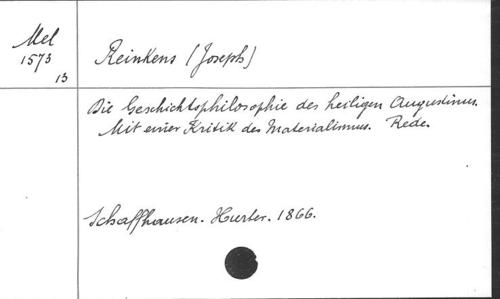 Mel
1573
13
Reinkens (Joseph)
Die Geschichtsphilosophie des heiligen Augustinus.
Mit einer Kritik des Materialismus. Rede.
Schaffhausen. Hurter. 1866.